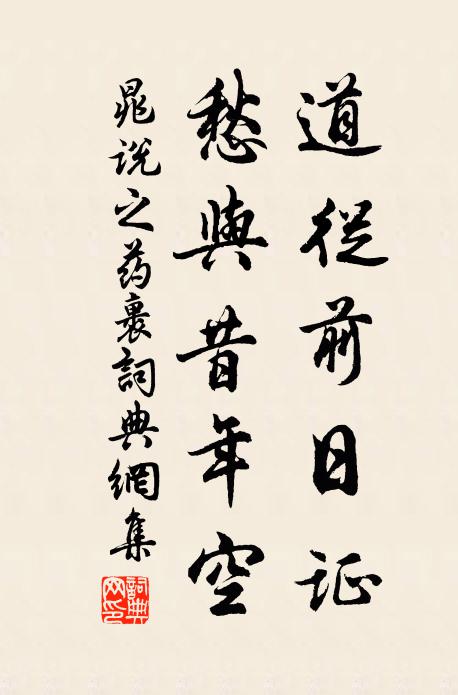 道從前日証
愁與昔年空
晁說之药裹詞典網集
詞典網印